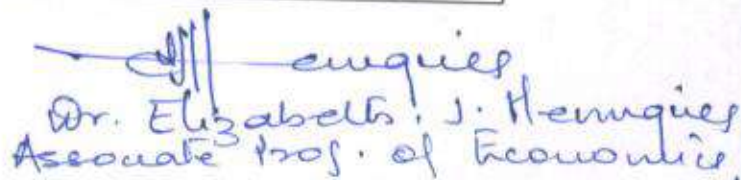 Henriques
Dr. Elizabeth. J. Henriques
Associate Prof. of Economics